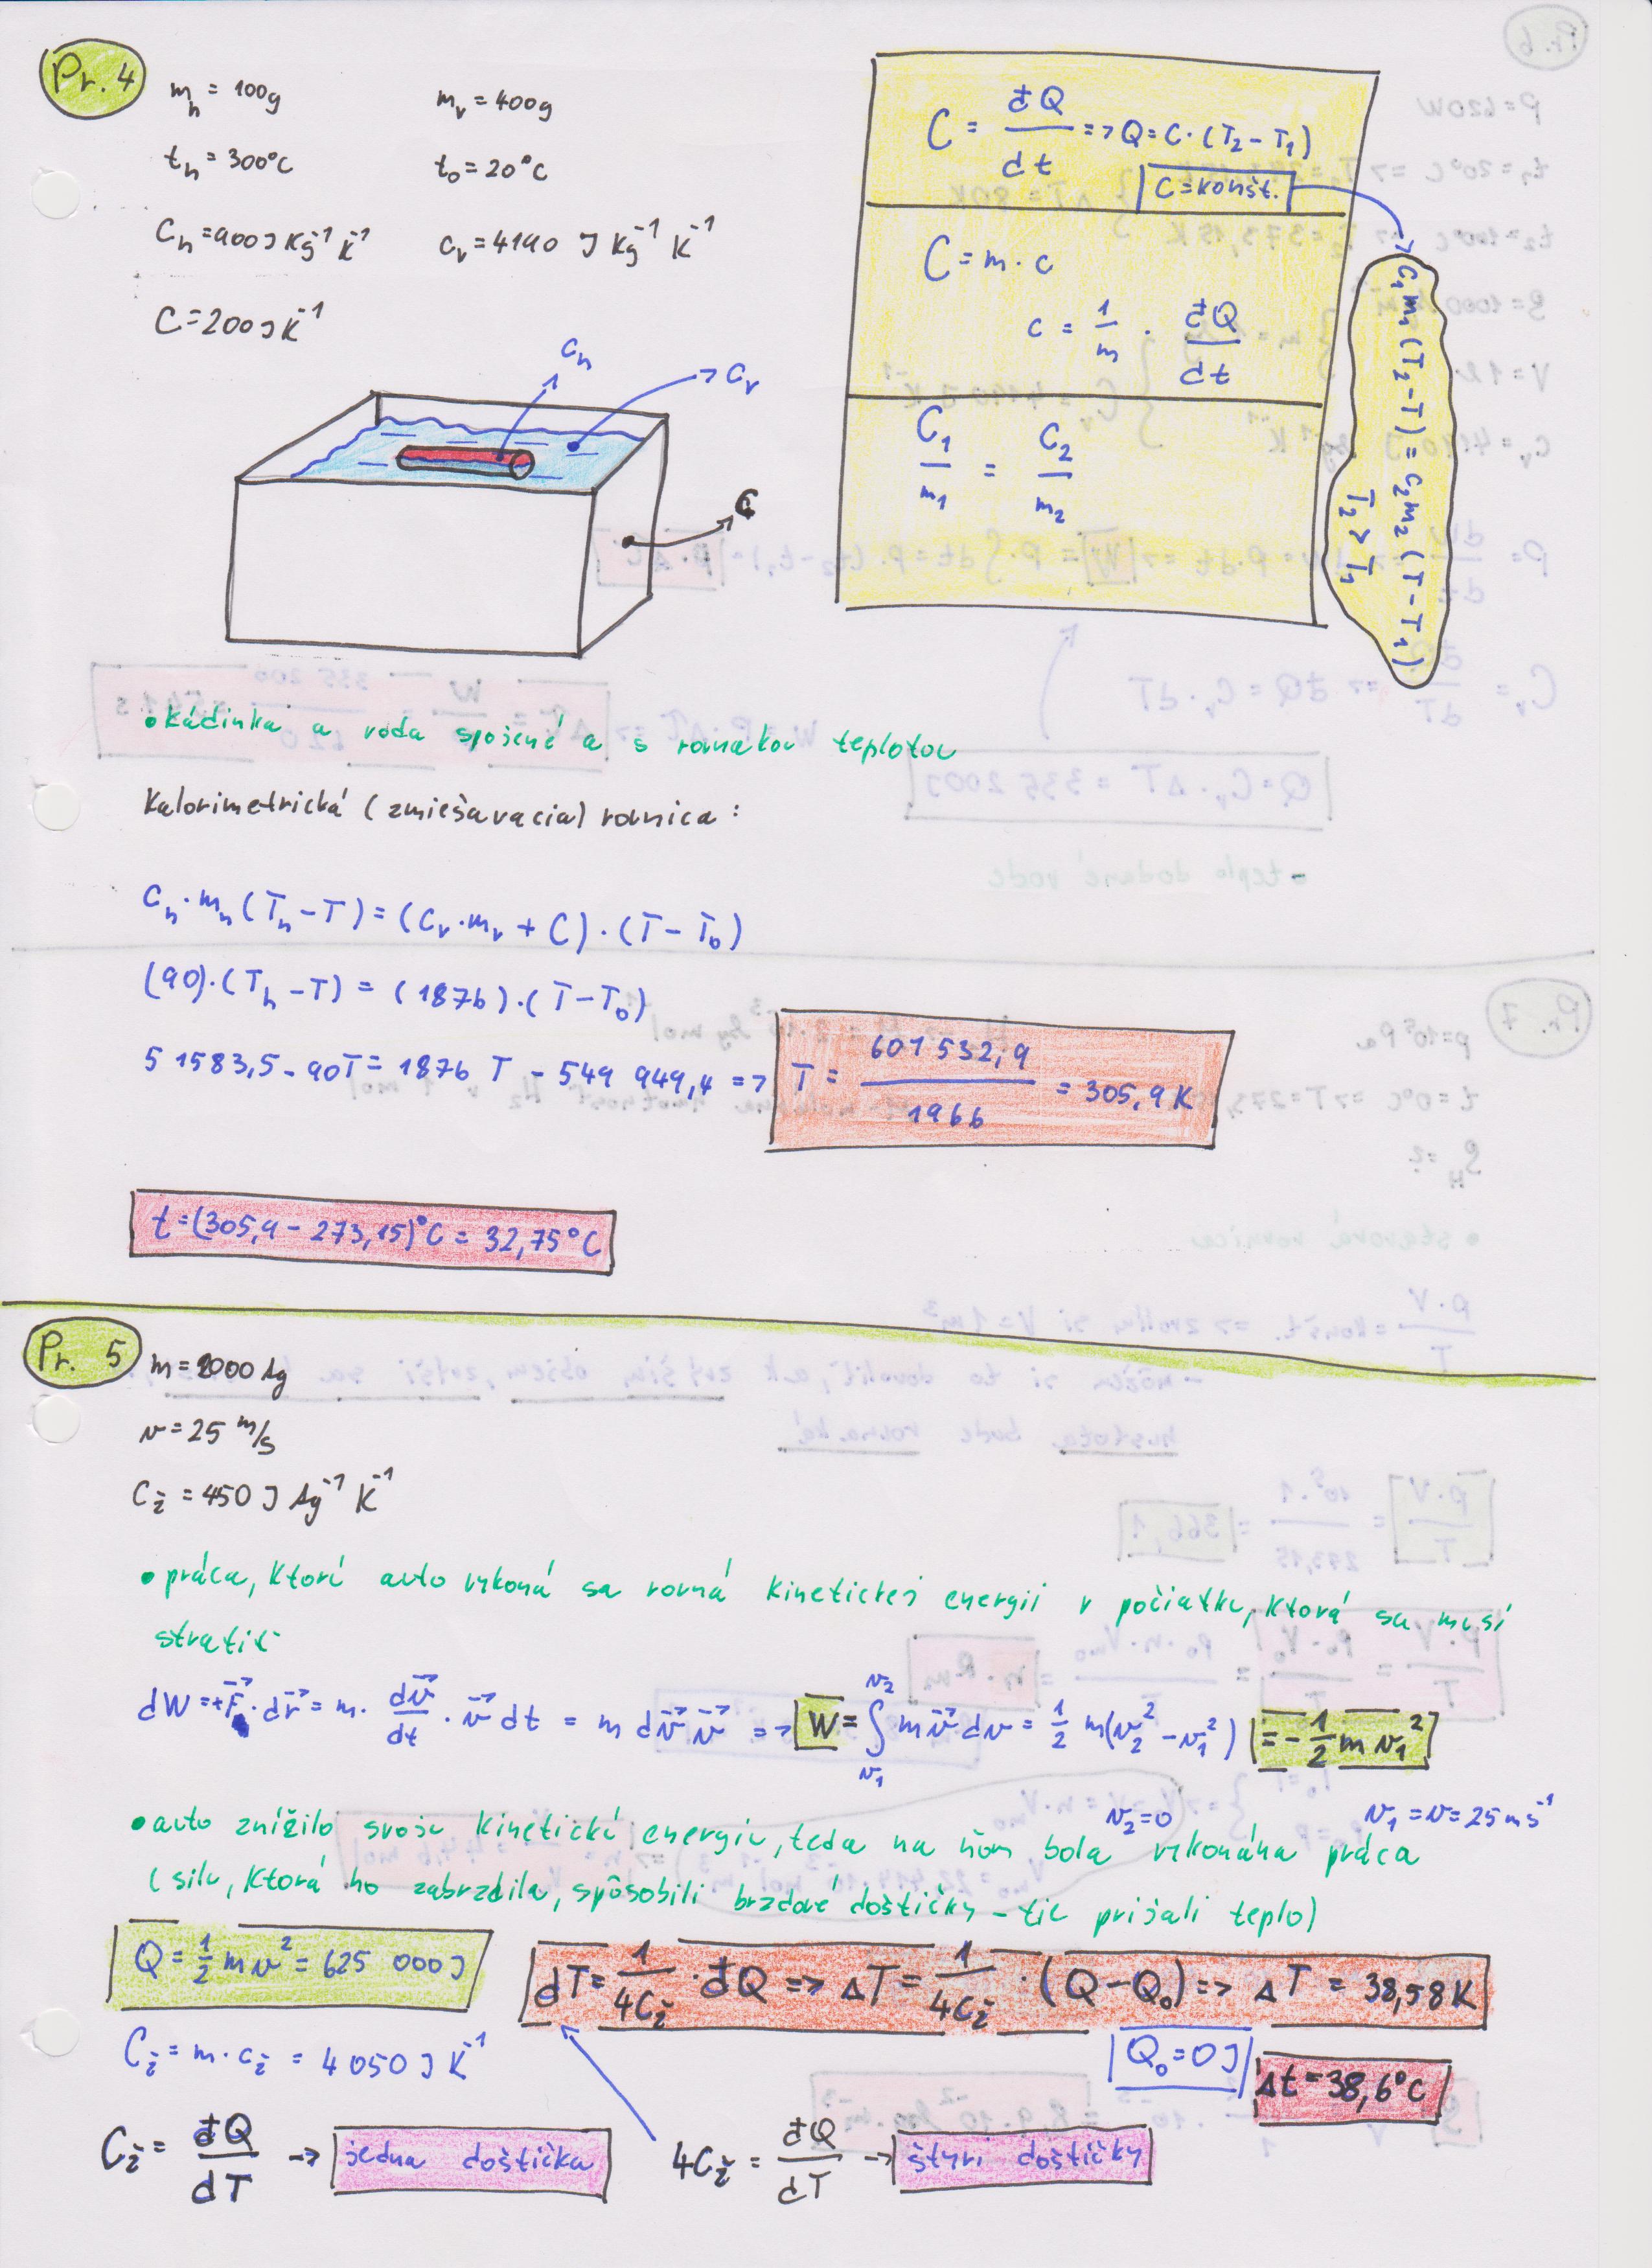 Pr. 4
m_h = 100g    m_v = 400g
t_h = 300°C    t_0 = 20°C
C_h = 900 J Kg⁻¹ K⁻¹    c_v = 4190 J Kg⁻¹ K⁻¹
C = 200 J K⁻¹
C = đQ/dt => Q = C · (T_2 - T_1)
C = konšt.
C = m · c
c = 1/m · đQ/dt
C_1/m_1 = C_2/m_2
c_1 m_1 (T_2 - T) = c_2 m_2 (T - T_1)
T_2 > T_1
c_h
c_v
C
• kádinka a voda spojené a s rovnakou teplotou
Kalorimetrická (zmiešavacia) rovnica:
c_h · m_h (T_h - T) = (c_v · m_v + C) · (T - T_0)
(90) · (T_h - T) = (1876) · (T - T_0)
51583,5 - 90T = 1876 T - 549 949,4 => T = 601 532,9 / 1966 = 305,9 K
t = (305,9 - 273,15)°C = 32,75°C
Pr. 5
m = 2000 kg
v = 25 m/s
C_ž = 450 J kg⁻¹ K⁻¹
• práca, ktorú auto vykoná sa rovná kinetickej energii v počiatku, ktorá sa musí
stratiť
dW = +F⃗ · dr⃗ = m · dv⃗/dt · v⃗ dt = m dv⃗ v⃗ => W = ∫_{v_1}^{v_2} m v⃗ dv = 1/2 m (v_2² - v_1²) = -1/2 m v_1²
v_2 = 0    v_1 = v = 25 ms⁻¹
• auto znížilo svoju kinetickú energiu, teda na ňom bola vykonána práca
(silu, ktorá ho zabrzdila, spôsobili brzdové doštičky - tie prijali teplo)
Q = 1/2 m v² = 625 000 J
dT = 1/4C_ž · đQ => ΔT = 1/4C_ž · (Q - Q_0) => ΔT = 38,58 K
C_ž = m · c_ž = 4 050 J K⁻¹
Q_0 = 0 J
Δt = 38,6°C
C_ž = đQ/dT -> jedna doštička
4C_ž = đQ/dT -> štyri doštičky